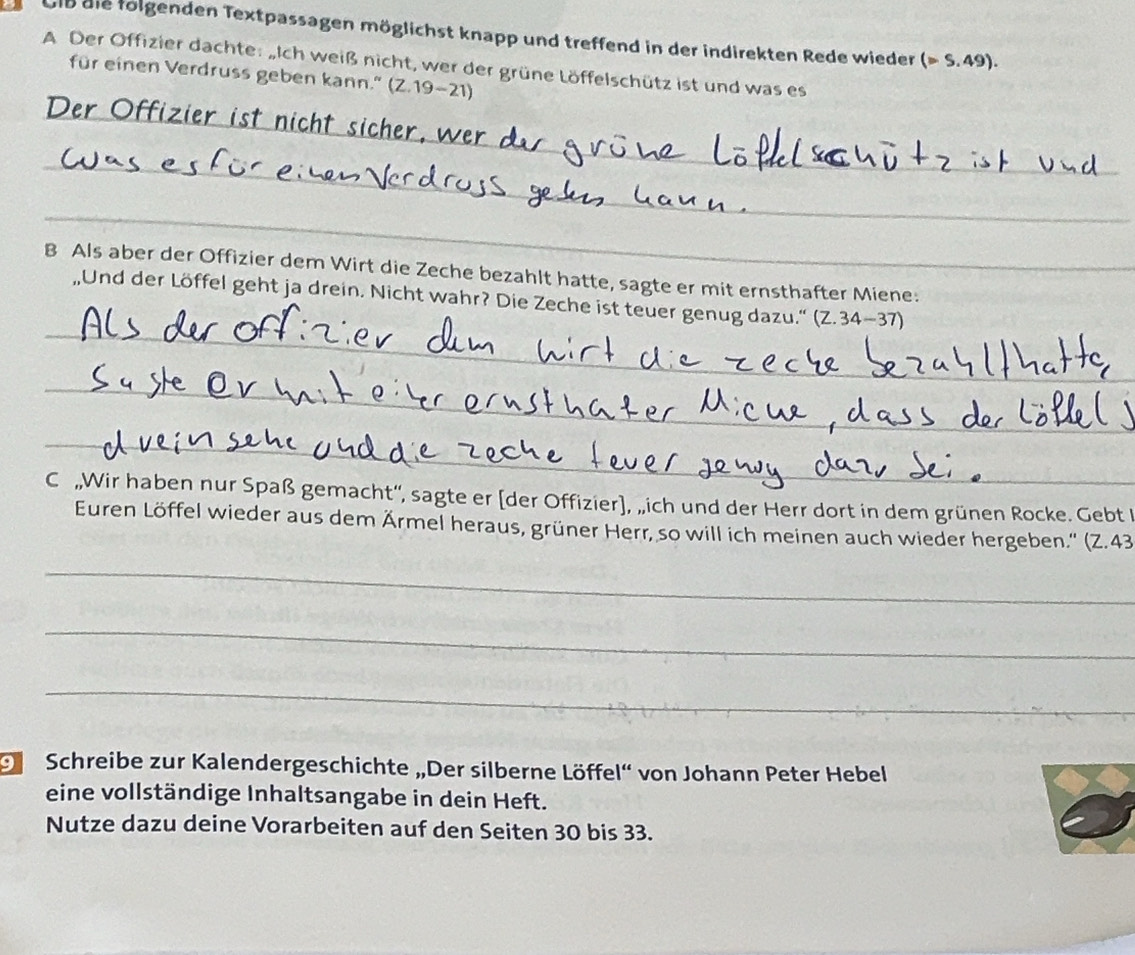 8 Gib die folgenden Textpassagen möglichst knapp und treffend in der indirekten Rede wieder (▸ S. 49).
A Der Offizier dachte: „Ich weiß nicht, wer der grüne Löffelschütz ist und was es
für einen Verdruss geben kann.“ (Z. 19–21)
Der Offizier ist nicht sicher, wer der grüne Löffelschütz ist und
was es für einen Verdruss geben kann.
B Als aber der Offizier dem Wirt die Zeche bezahlt hatte, sagte er mit ernsthafter Miene:
„Und der Löffel geht ja drein. Nicht wahr? Die Zeche ist teuer genug dazu.“ (Z. 34–37)
Als der offizier dem wirt die zeche bezahlt hatte,
sagte er mit einer ernsthater Miene, dass der Löffel
drein sehe und die zeche teuer genug dazu sei.
C „Wir haben nur Spaß gemacht“, sagte er [der Offizier], „ich und der Herr dort in dem grünen Rocke. Gebt
Euren Löffel wieder aus dem Ärmel heraus, grüner Herr, so will ich meinen auch wieder hergeben.“ (Z. 43
9 Schreibe zur Kalendergeschichte „Der silberne Löffel“ von Johann Peter Hebel
eine vollständige Inhaltsangabe in dein Heft.
Nutze dazu deine Vorarbeiten auf den Seiten 30 bis 33.